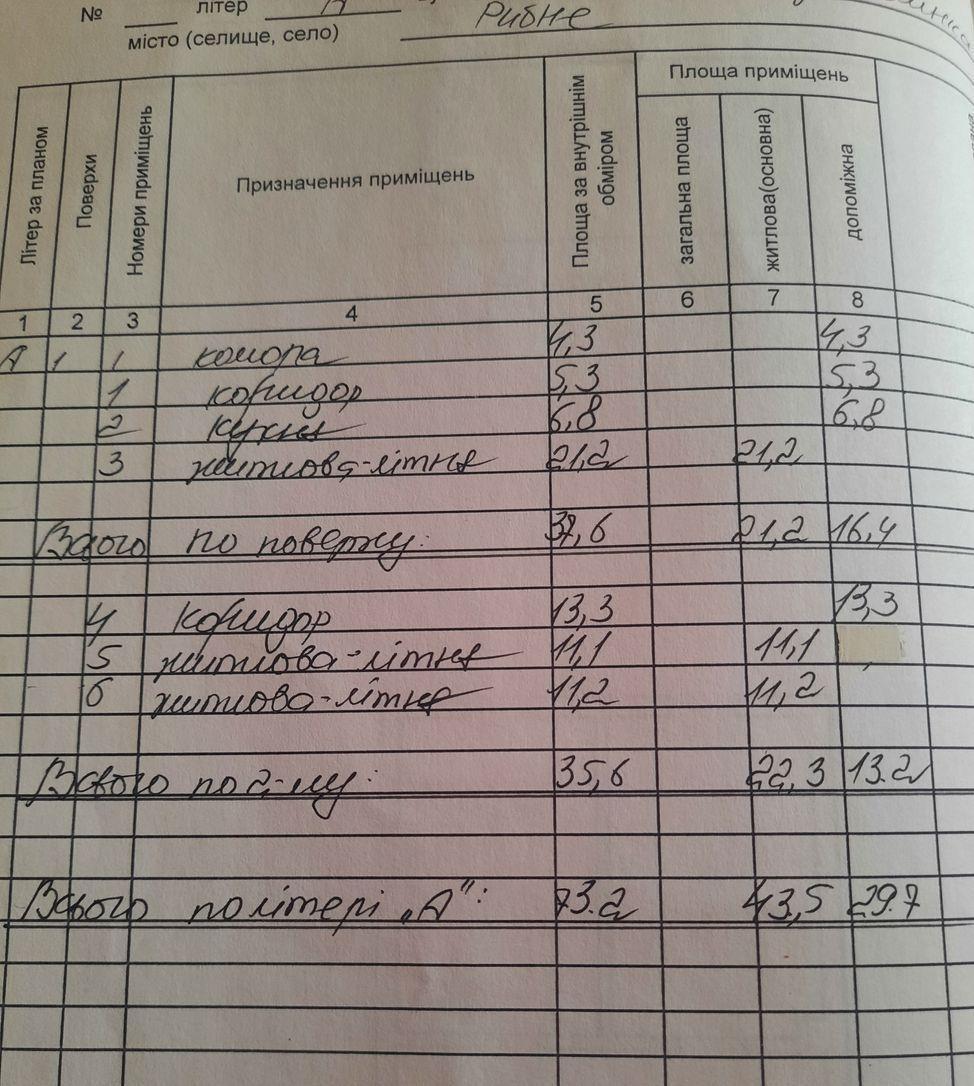 № ___ літер А
місто (селище, село) Рибне
Літер за планом
Поверхи
Номери приміщень
Призначення приміщень
Площа за внутрішнім обміром
Площа приміщень
загальна площа
житлова(основна)
допоміжна
1 2 3 4 5 6 7 8
А 1 1 комора 4,3 4,3
1 коридор 5,3 5,3
2 кухня 6,8 6,8
3 житлова-літня 21,2 21,2
Всього по поверху: 37,6 21,2 16,4
4 коридор 13,3 13,3
5 житлова-літня 11,1 11,1
6 житлова-літня 11,2 11,2
Всього по 2-му: 35,6 22,3 13.2
Всього по літері „А": 73.2 43,5 29.7